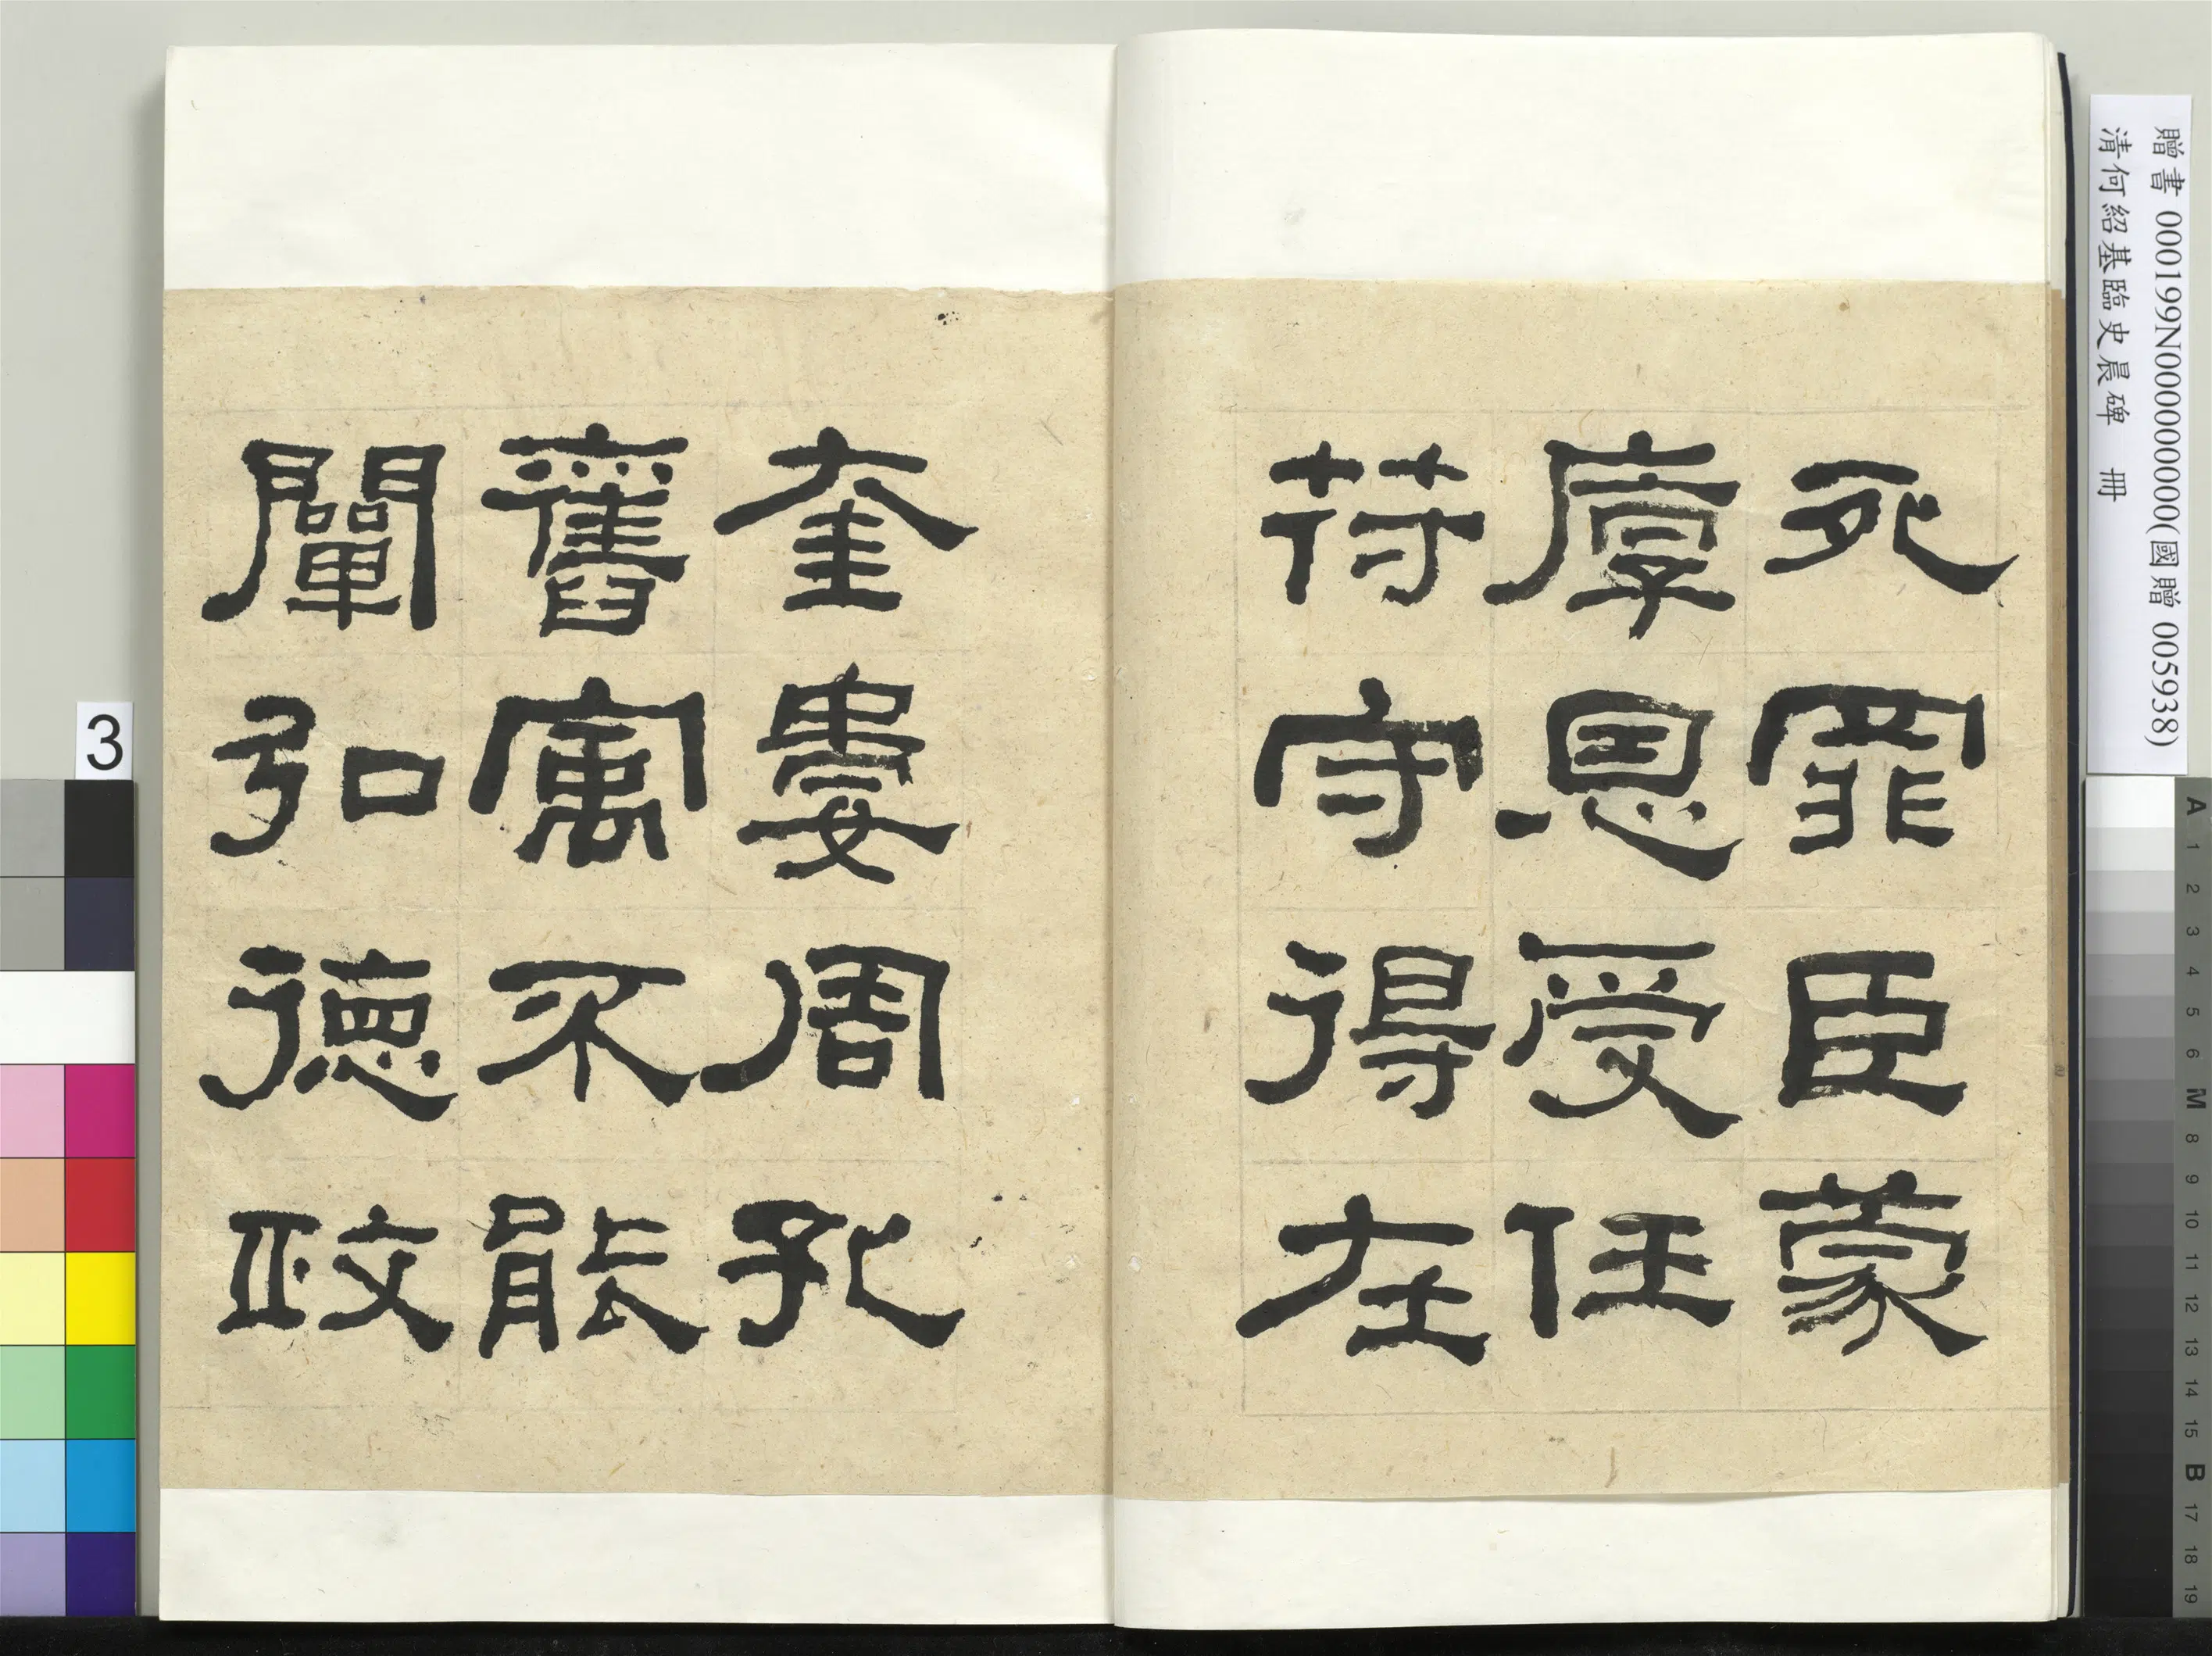 死罪臣蒙
厚恩受任
符守得在
奎婁周孔
舊寓不能
闡弘德政
贈書 000199N000000000(國贈 005938)
清何紹基臨史晨碑 冊
3
A 1 2 3 4 5 6 M 8 9 10 11 12 13 14 15 B 17 18 19